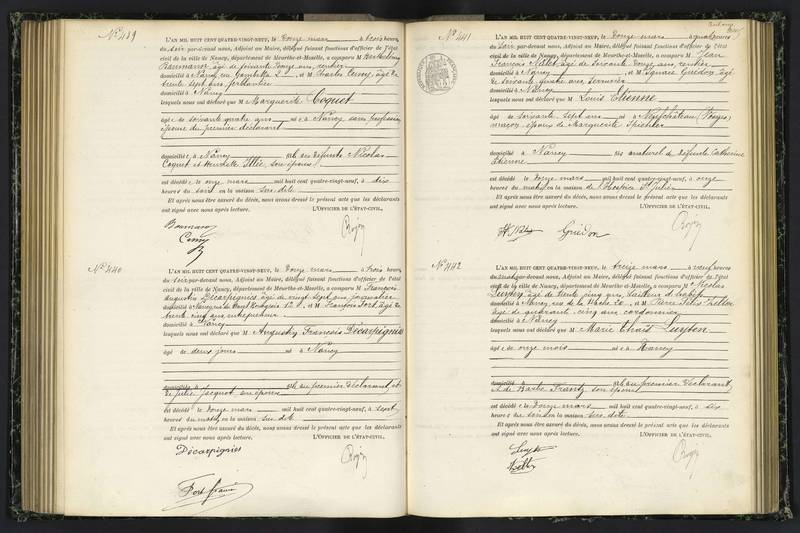 No 439
L'AN MIL HUIT CENT QUATRE-VINGT-NEUF, le Douze mars à trois heures
du soir par-devant nous, Adjoint au Maire, délégué faisant fonctions d'officier de l'état
civil de la ville de Nancy, département de Meurthe-et-Moselle, a comparu M Barthelemy
âgé de soixante ans, rentier
domicilié à Nancy, rue Gambetta 2 et M Charles Cuny, âgé de
trente sept ans
domicilié à Nancy
lesquels nous ont déclaré que M Marguerite Coquet
âgée de soixante quatre ans née à Nancy sans profession
épouse du premier déclarant
domiciliée à Nancy fille des défunts Nicolas
Coquet et son épouse
est décédée le onze mars mil huit cent quatre-vingt-neuf, à dix
heures du soir en la maison sus dite
Et après nous être assuré du décès, nous avons dressé le présent acte que les déclarants
ont signé avec nous après lecture. L'OFFICIER DE L'ÉTAT-CIVIL,
Cuny
No 440
L'AN MIL HUIT CENT QUATRE-VINGT-NEUF, le Douze mars à trois heures
du soir par-devant nous, Adjoint au Maire, délégué faisant fonctions d'officier de l'état
civil de la ville de Nancy, département de Meurthe-et-Moselle, a comparu M François
Augustin Décarpignies âgé de vingt sept ans journaliste
domicilié à Nancy et M François Fort âgé de
trente cinq ans entrepreneur
domicilié à Nancy
lesquels nous ont déclaré que M Augustin François Décarpignies
âgé de deux jours né à Nancy
domicilié à fils du premier déclarant et
de Julie Jacquot son épouse
est décédé le douze mars mil huit cent quatre-vingt-neuf, à sept
heures du matin en la maison sus dite
Et après nous être assuré du décès, nous avons dressé le présent acte que les déclarants
ont signé avec nous après lecture. L'OFFICIER DE L'ÉTAT-CIVIL,
Décarpignies
No 441
L'AN MIL HUIT CENT QUATRE-VINGT-NEUF, le Douze mars à quatre heures
du soir par-devant nous, Adjoint au Maire, délégué faisant fonctions d'officier de l'état
civil de la ville de Nancy, département de Meurthe-et-Moselle, a comparu M Jean
François âgé de soixante ans, rentier
domicilié à Nancy et M Ignace Guédon âgé
de soixante quatre ans
domicilié à Nancy
lesquels nous ont déclaré que M Louis Etienne
âgé de soixante sept ans né à Neufchâteau (Vosges)
maçon, époux de Marguerite
domicilié à Nancy fils naturel de défunte Catherine
Etienne
est décédé le douze mars mil huit cent quatre-vingt-neuf, à onze
heures du matin en la maison de l'Hospice St Julien
Et après nous être assuré du décès, nous avons dressé le présent acte que les déclarants
ont signé avec nous après lecture. L'OFFICIER DE L'ÉTAT-CIVIL,
Guédon
No 442
L'AN MIL HUIT CENT QUATRE-VINGT-NEUF, le treize mars à neuf heures
du matin par-devant nous, Adjoint au Maire, délégué faisant fonctions d'officier de l'état
civil de la ville de Nancy, département de Meurthe-et-Moselle, a comparu M Nicolas
âgé de trente cinq ans, tailleur d'habits
domicilié à Nancy et M Pierre
âgé de quarante cinq ans cordonnier
domicilié à Nancy
lesquels nous ont déclaré que M Marie
âgée de onze mois née à Nancy
domiciliée à fille du premier déclarant
et de Barbe Frantz son épouse
est décédée le Douze mars mil huit cent quatre-vingt-neuf, à dix
heures du soir en la maison sus dite
Et après nous être assuré du décès, nous avons dressé le présent acte que les déclarants
ont signé avec nous après lecture. L'OFFICIER DE L'ÉTAT-CIVIL,